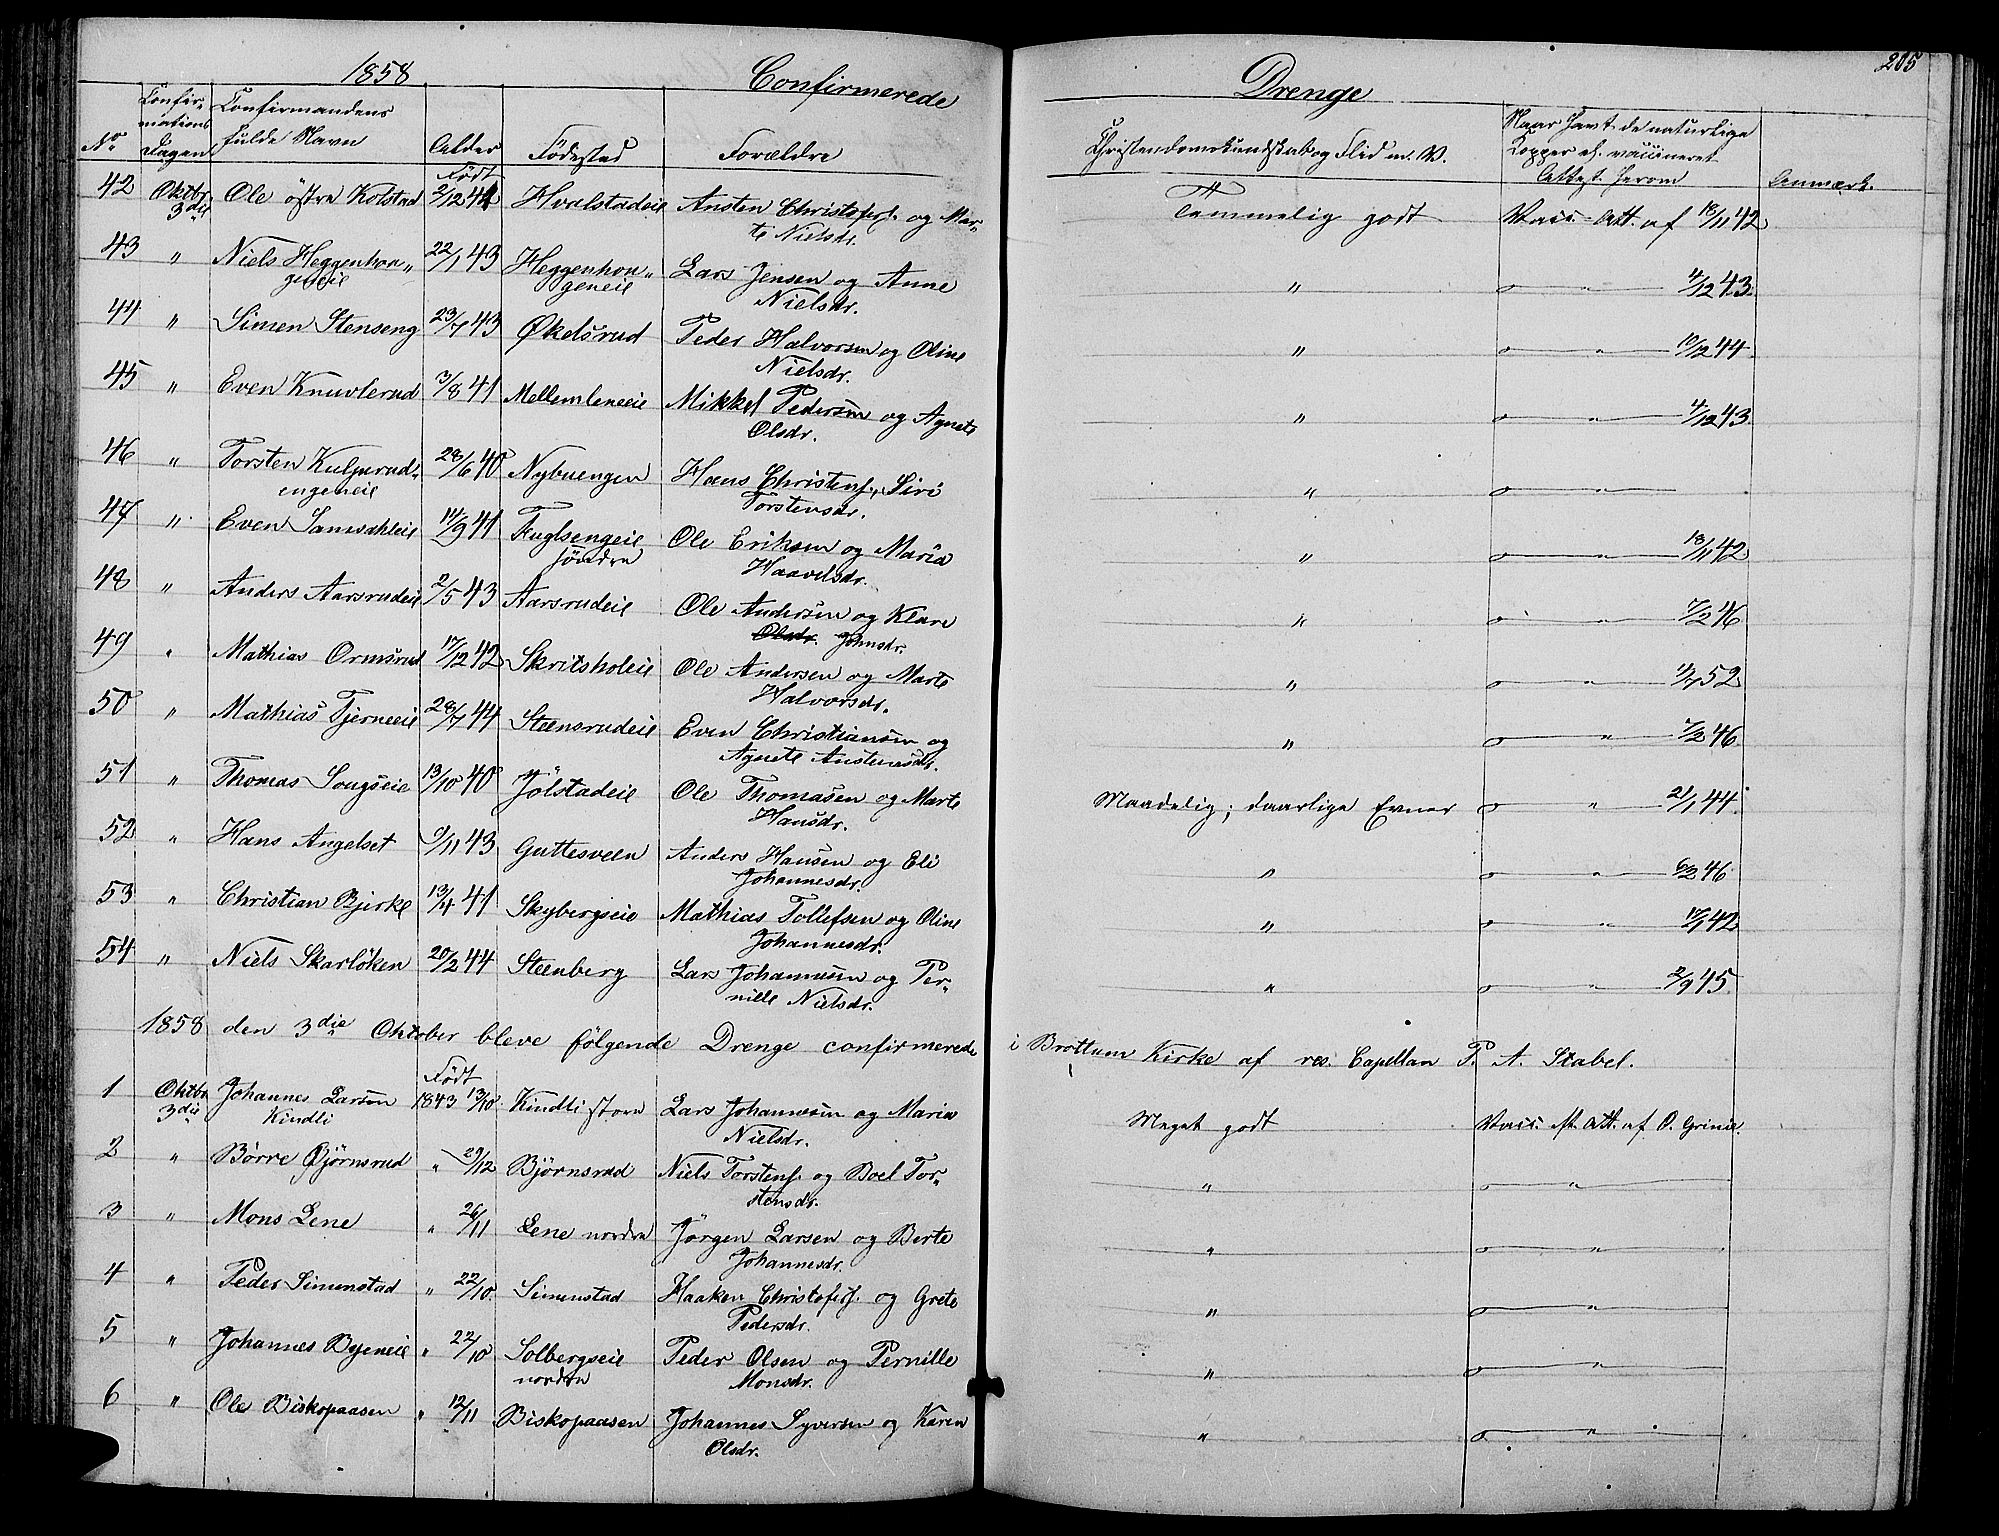 1858 Confirmerede Drenge 205
No Confirmations Dagen Confirmandens fulde Navn Alder Födested Forældre Christendomskundskab og Flid m. V. Naar havt de naturlige Kopper el. vaccineret Attest herom Anmærk.
Födt
42 Oktbr 3die Ole östre Kolstad 2/12 41 Hvalstadeie Ansten Christofers. og Marte Nielsdr. Temmelig godt Vacc. Att. af 18/11 42
43 " Niels Heggenhougeneie 22/1 43 Heggenhougeneie Lars Jensen og Anne Nielsdr. " " 4/12 43.
44 " Simen Stenseng 23/7 43 Økelsrud Peder Halvorsen og Oline Nielsdr. " " 10/12 44.
45 " Even Knuvlerud 3/8 41 Mellemleneeie Mikkel Pedersen og Agnete Olsdr. " " 4/12 43.
46 " Torsten Kulpurudengeneie 28/6 40 Nybuengen Hans Christens., Siri Torstensdr. " "
47 " Even Samsahleie 14/9 41 Fuglsengeie søndre Ole Eriksen og Maria Haavelsdr. " " 18/11 42
48 " Anders Aarsrudeie 2/5 43 Aarsrudeie Ole Andersen og Klare Olsdr. Johnsdr. " " 7/2 46
49 " Mathias Ormsrud 17/12 42 Skritsholeie Ole Andersen og Marte Halvorsdr. " " 52
50 " Mathias Tjerneeie 28/7 44 Steensrudeie Even Christiansen og Agnete Anstensdr. " " 7/2 46.
51 " Thomas Sougseie 13/10 40 Jölstadeie Ole Thomasen og Marte Hansdr. Maadelig; daarlige Evner " 21/1 44.
52 " Hans Angelset 9/11 43 Guttesveen Anders Hansen og Eli Johannesdr. " " 6/2 46.
53 " Christian Bjerke 13/4 41 Skybergseie Mathias Tollefsen og Oline Johannesdr. " " 42
54 " Niels Skarlöken 20/2 44 Steenberg Lars Johannesen og Pernille Nielsdr. " " 2/9 45.
1858 den 3die Oktober bleve fölgende Drenge confirmerede i Brøttum Kirke af res. Capellan P. A. Stabel.
Födt
1 Oktbr 3die Johannes Larsen Kindli 1843 13/10. Kindli store Lars Johannesen og Maria Nielsdr. Meget godt Vacc. Att. af O. Grinie.
2 " Börre Bjørnsrud " 29/12 Bjørnsrud Niels Torstens. og Boel Torstensdr. " "
3 " Mons Lene " 26/11 Lene nordre Jörgen Larsen og Berte Johannesdr. " "
4 " Peder Simenstad " 22/10. Simenstad Haaken Christofers. og Grete Pedersdr. " "
5 " Johannes Byeneie " 22/10 Solbergseie nordre Peder Olsen og Pernille Monsdr. " "
6 " Ole Biskopaasen " 12/11 Biskopaasen Johannes Syversen og Karen Olsdr. " "